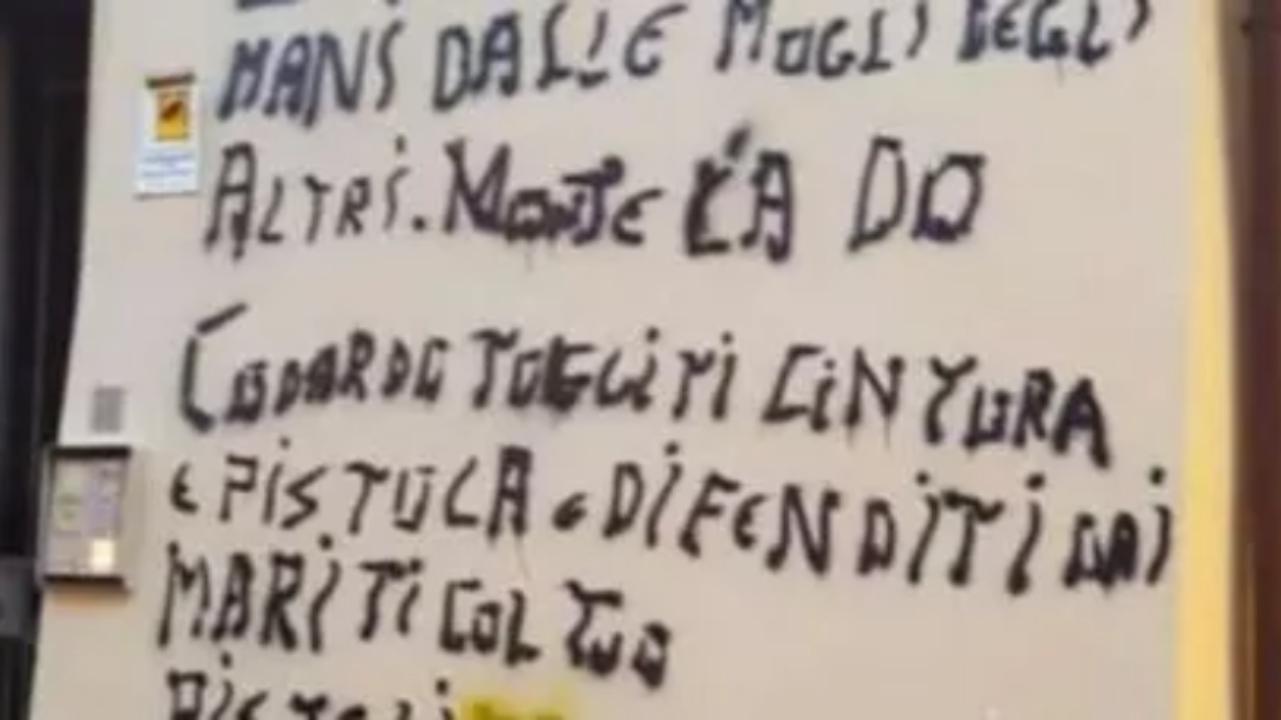 MANi DALLE MOGLi DEGLi
ALTRi. MONTE CA DO
CODARDO TOGLiTi CiNTURA
e PiSTOLA e DiFENDiTi DAi
MARiTi COL TUO